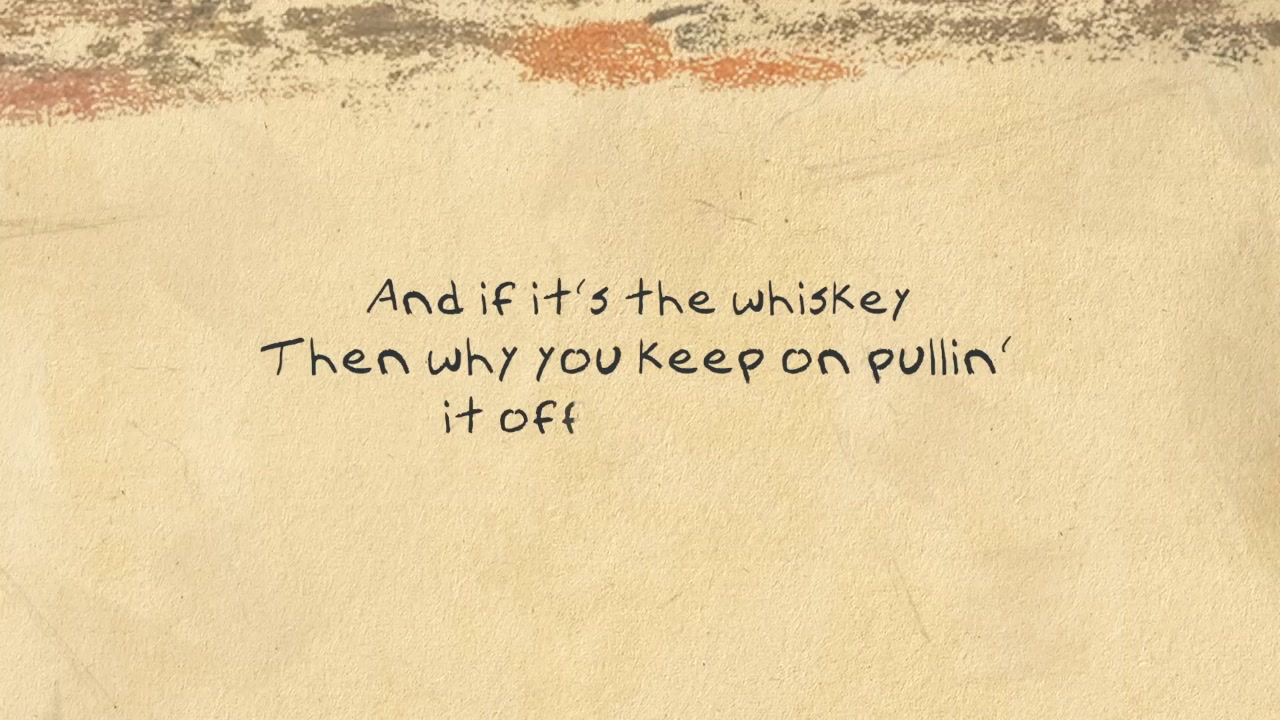 And if it's the whiskey
Then why you keep on pullin'
it off